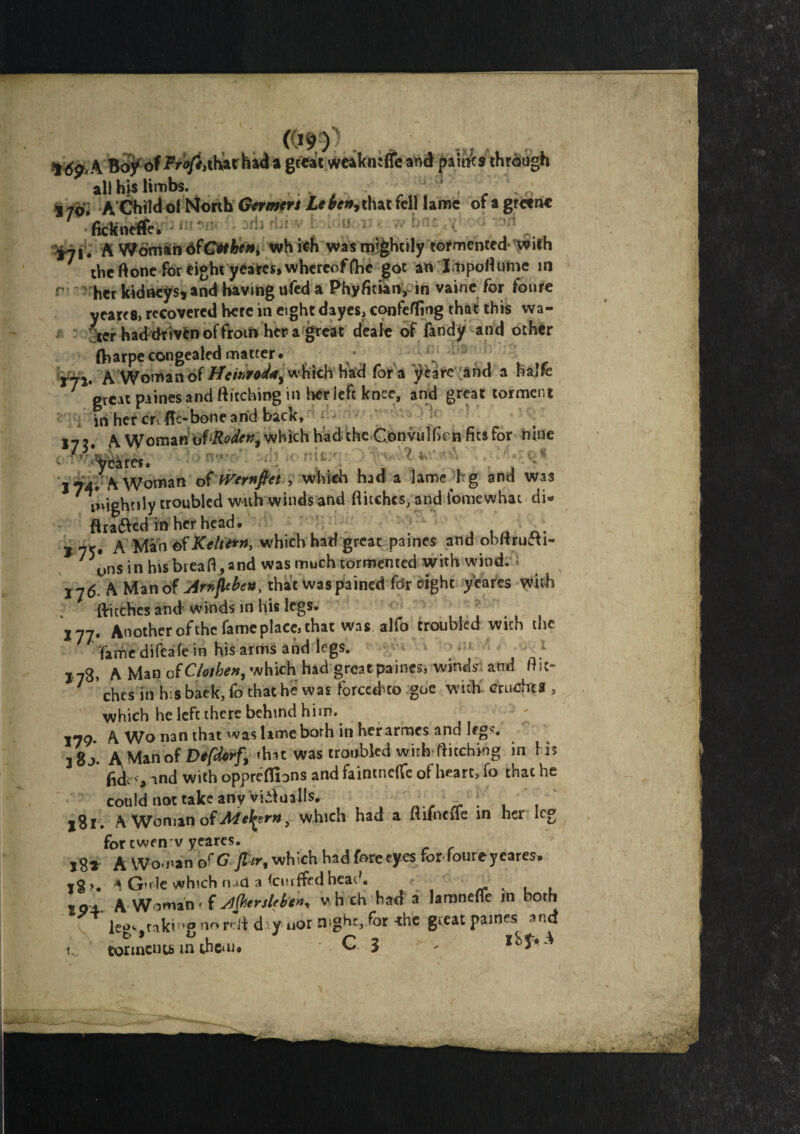 (19)
169. A Boy of Prost, that had a great weaknesse and paines through
all his limbs.
170. A Child of North Germers Leben, that fell lame of a greene
sicknesse.
171. A Woman of Cothen, which was mightily tormented with
the stone for eight yeares, whereof she got an Impostume in
her kidneys, and having used a Phyſitian, in vaine for foure
yeares, recovered here in eight dayes, confeſſing that this wa-
ter had driven of from her a great deale of ſandy and other
ſharpe congealed matter.
172. A Woman of Heinroda, which had for a yeare and a halfe
great paines and ſtitching in her left knee, and great torment
in her croſſe-bone and back,
173. A Woman of Roden, which had the Convulſion fits for nine
yeares.
174. A Woman of Wernſtet, which had a lame leg and was
mightily troubled with winds and ſtitches, and ſomewhat di-
ſtracted in her head.
175. A Man of Keltern, which had great paines and obſtructi-
ons in his breaſt, and was much tormented with wind.
176. A Man of Arnſleben, that was pained for eight yeares with
ſtitches and winds in his legs.
177. Another of the ſame place, that was alſo troubled with the
ſame diſeaſe in his arms and legs.
178. A Man of Clothen, which had great paines, winds and ſtit-
ches in his back, ſo that he was forced to goe with cruches,
which he left there behind him.
179. A Woman that was lame both in her armes and legs.
180. A Man of Deſdorf, that was troubled with ſtitching in his
ſides, and with oppreſſions and faintneſſe of heart, ſo that he
could not take any victualls.
181. A Woman of Mekern, which had a ſtifneſſe in her leg
for twenty yeares.
182 A Woman of G. ſlar, which had ſore eyes for foure yeares.
183. A Girle which had a ſcurffed head.
184. A Woman of Aſhersleben, which had a lamneſſe in both
legs, taking no reſt day nor night, for the great paines and
torments in them. C 3 185. A